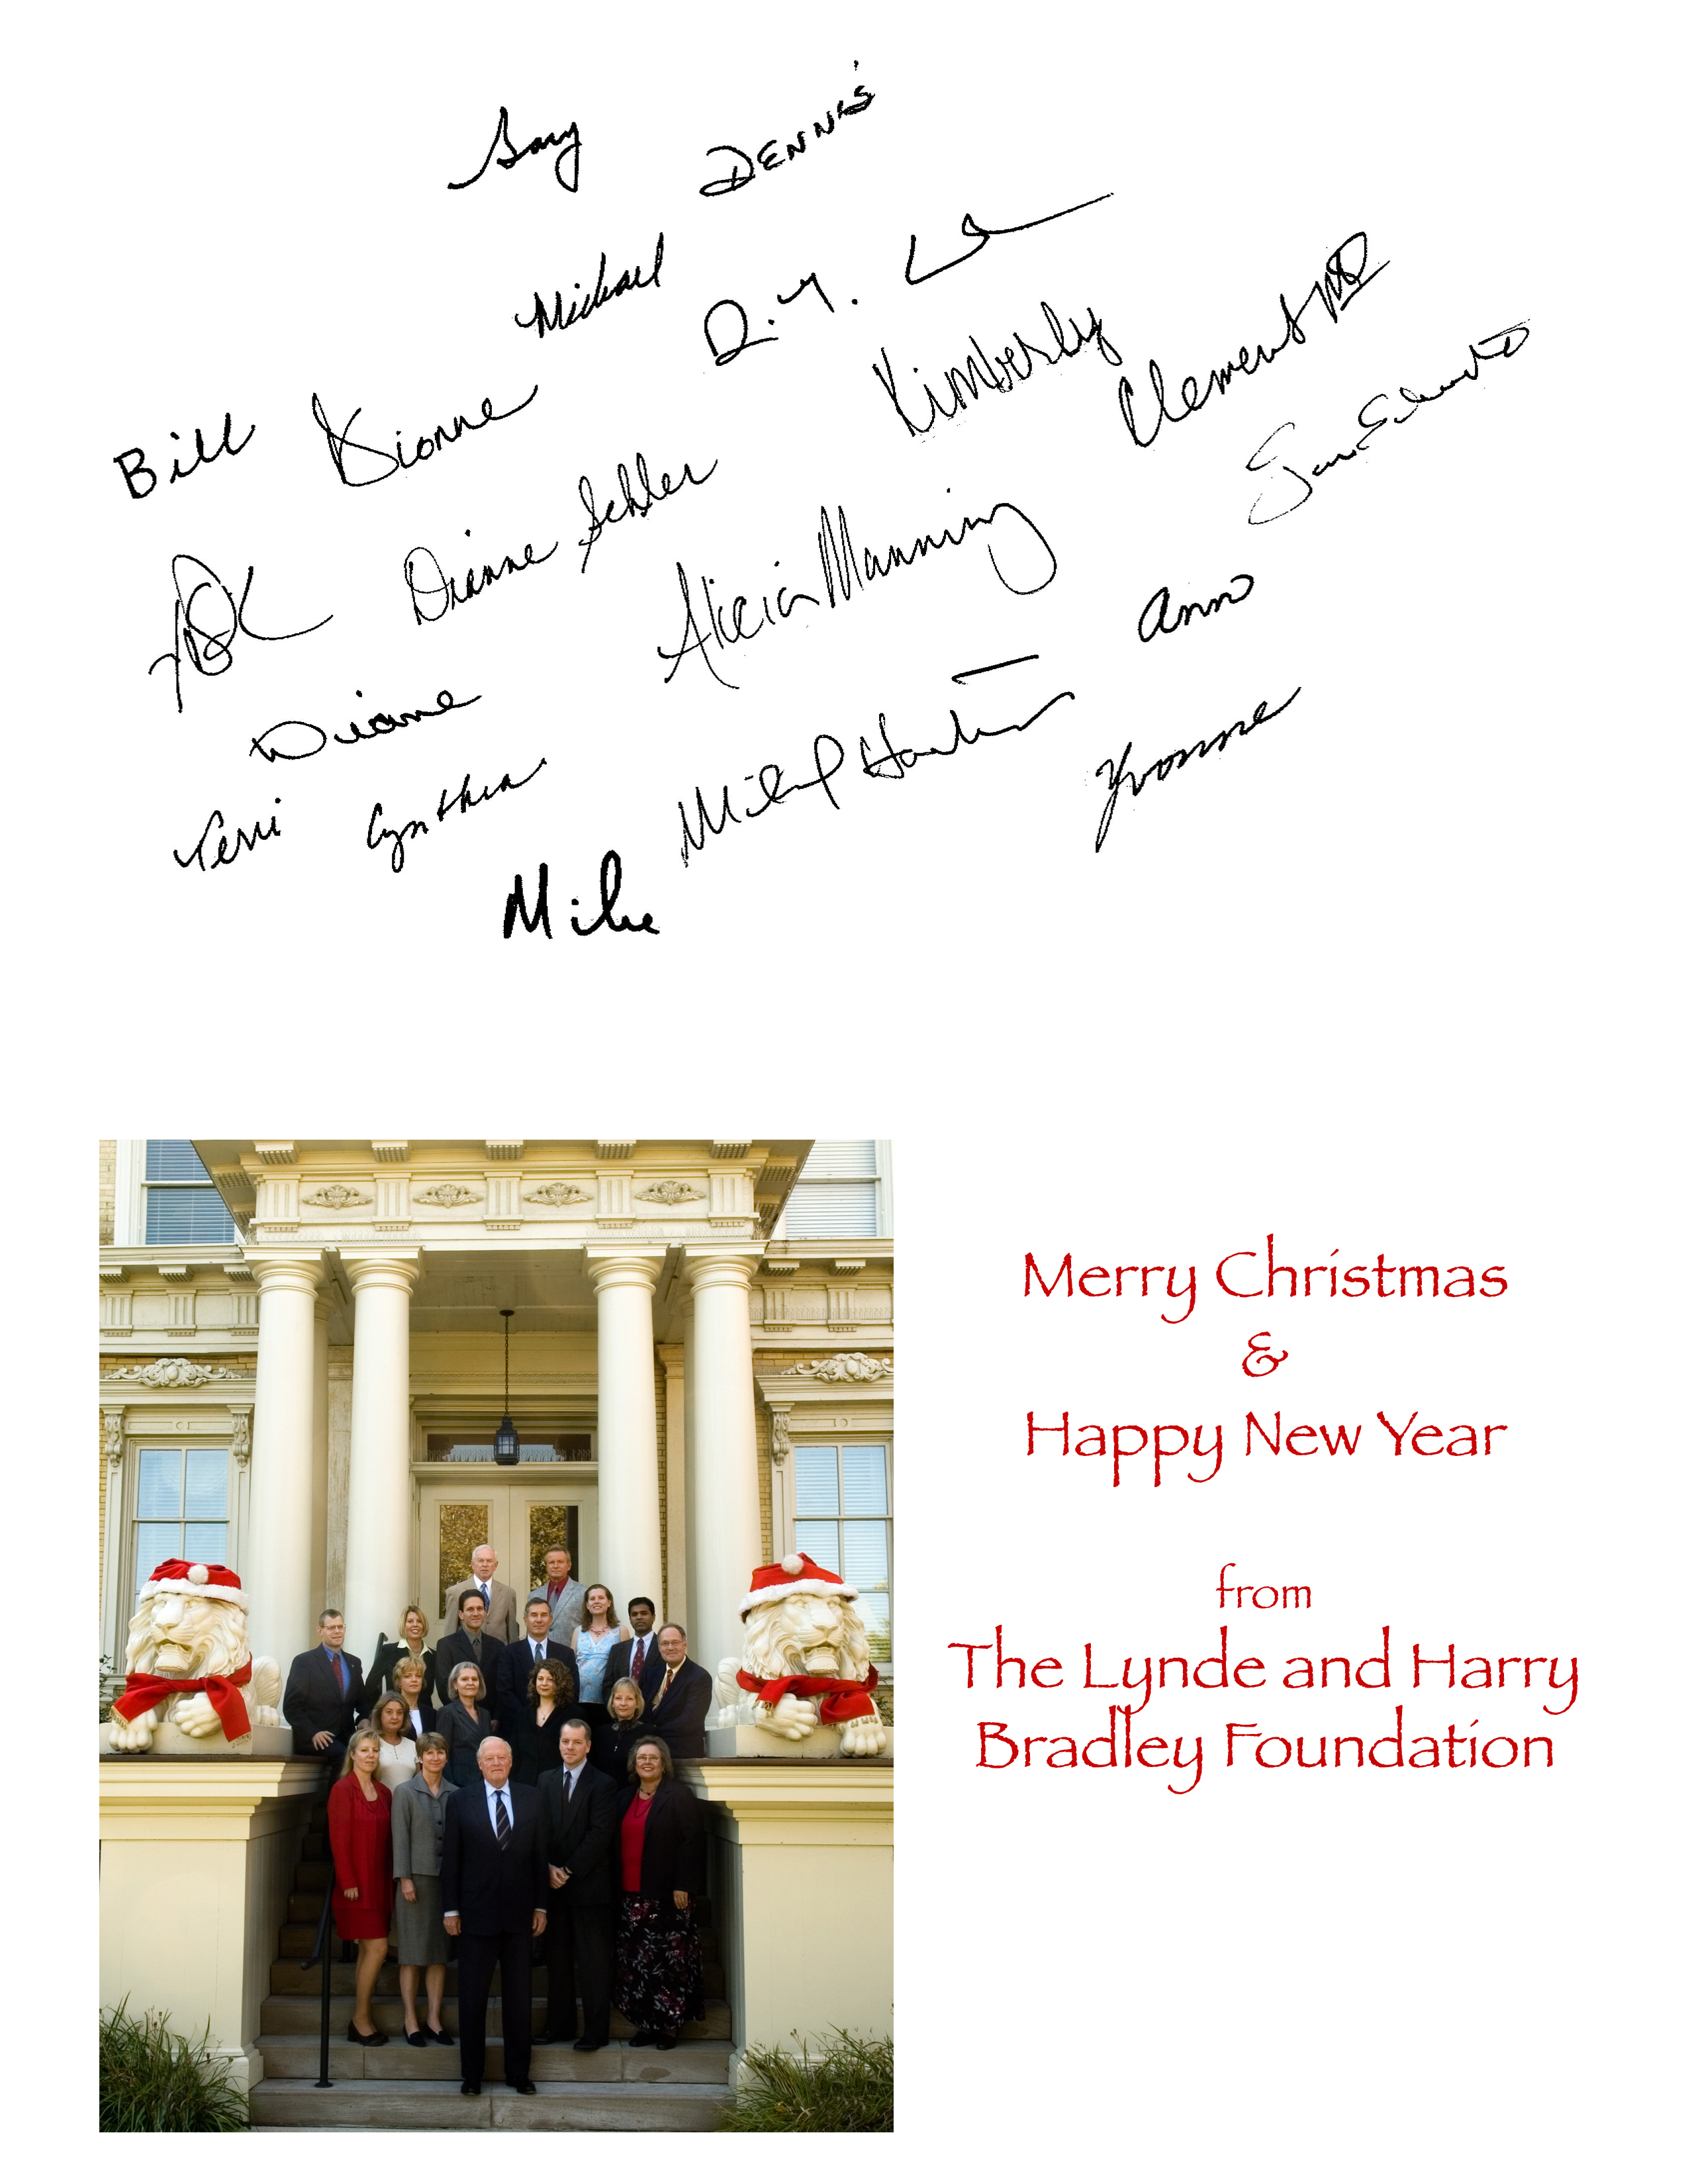 Gary
DENNIS
Michael
Bill
Dionne
Kimberly
Clement
Dianne Sehler
Alicia Manning
Dianne
Ann
Terri
Cynthia
Michael Hartmann
Yvonne
Mike
Merry Christmas
&
Happy New Year
from
The Lynde and Harry
Bradley Foundation